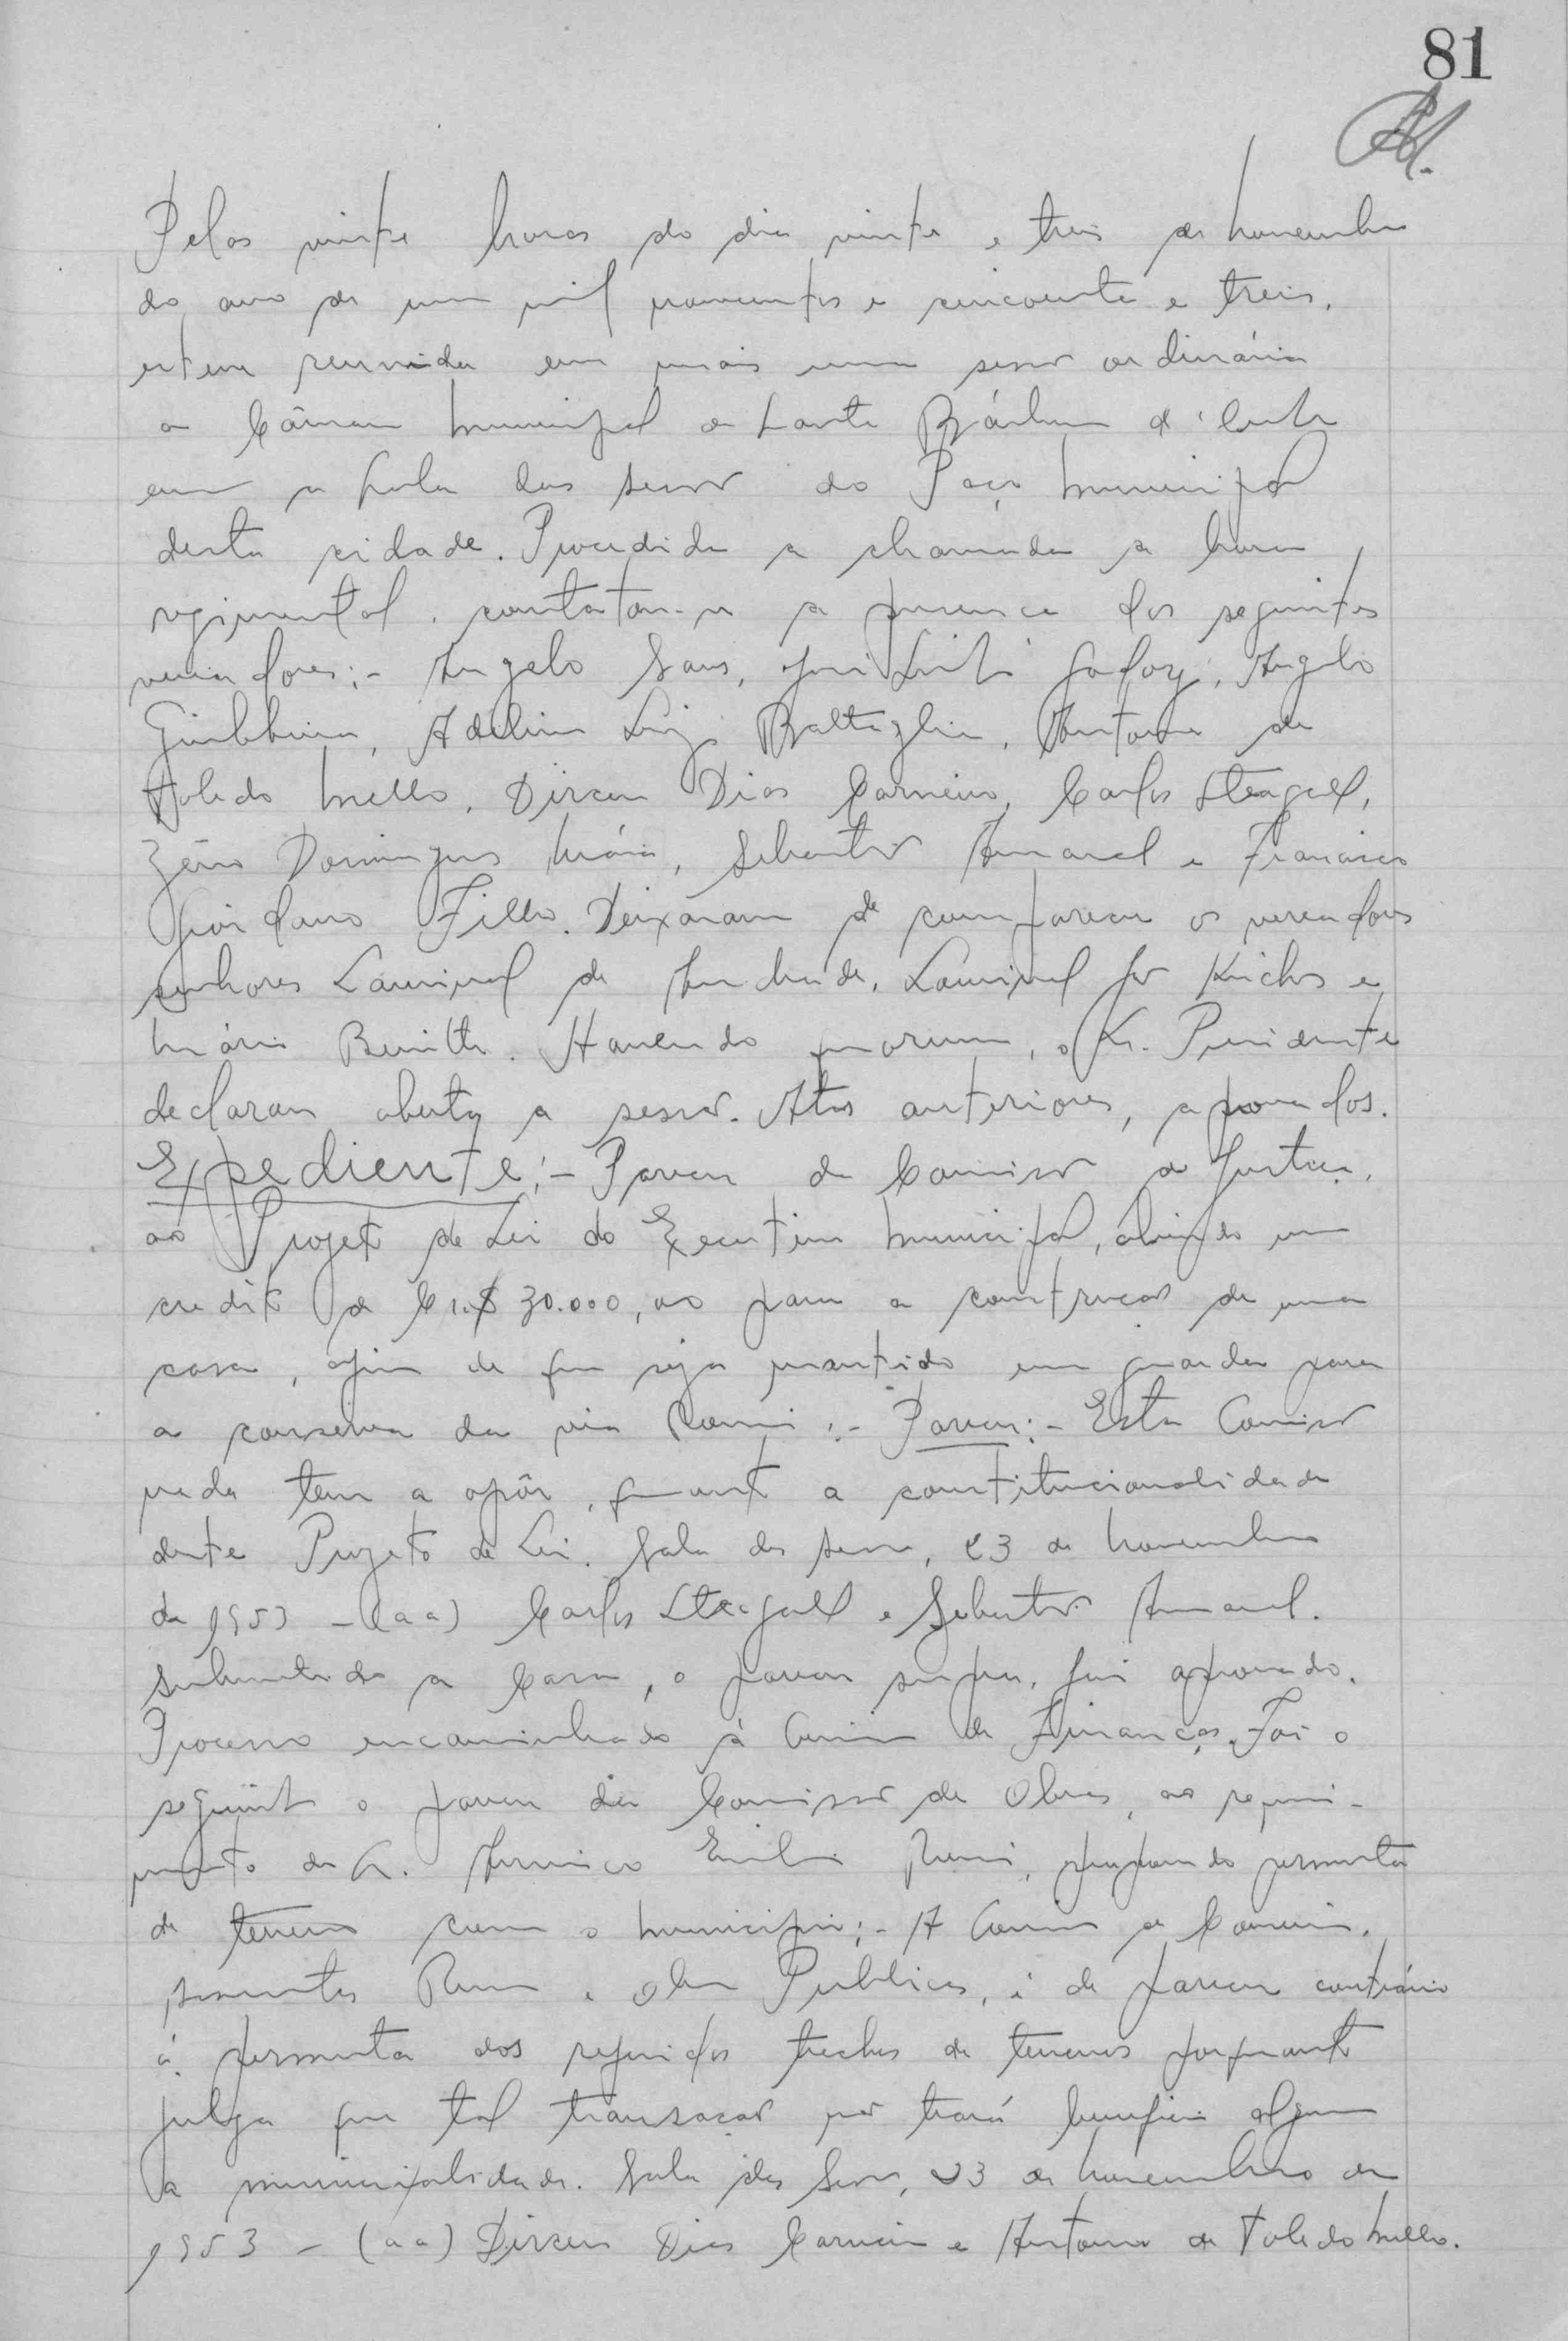 81
Pelas vinte horas do dia vinte e treis de Novembro
do ano de um mil novecentos e cincoenta e treis,
esteve reunida em mais uma sessão ordinária
a Câmara Municipal de Santa Bárbara d'Oeste
em a Sala das sessões do Paço Municipal
desta cidade. Procedida a chamada a hora
regimental, constatou-se a presença dos seguintes
vereadores:- Angelo Sans, José Luiz Godoy, Angelo
Giubbina, Adelino Luiz Battaglia, Antonio de
Toledo Mello, Dirceu Dias Carneiro, Carlos Steagall,
Zéno Domingues Maia, Sebastião Amaral e Francisco
Giordano Filho. Deixaram de comparecer os vereadores
senhores Lourival de Andrade, Lourival
Mário. Havendo quorum, o Sr. Presidente
declarou aberta a sessão. Atas anteriores, aprovadas.
Expediente:- Parecer da Comissão de Justiça,
ao Projeto de Lei do Executivo Municipal, abrindo um
credito de Cr.$ 30.000,00 para a construção de uma
casa, afim de que seja mantido um guarda para
a conserva da via Romi:- Parecer:- Esta Comissão
nada tem a opôr, quanto a constitucionalidade
deste Projeto de Lei. Sala das sessões, 23 de Novembro
de 1953 - (aa) Carlos Steagall e Sebastião Amaral.
Submetido a Casa, o parecer supra, foi aprovado.
Processo encaminhado à Comissão de Finanças. Foi o
seguinte o parecer da Comissão de Obras, ao requeri-
mento do Sr. Americo Emilio Romi, propondo permuta
de terreno com o Municipio:- A Comissão de
Obras Publicas, é de parecer contrário
à permuta dos referidos trechos de terrenos porquanto
julga que tal transação não trará beneficio algum
a municipalidade. Sala das Sessões, 23 de Novembro de
1953 - (aa) Dirceu Dias Carneiro e Antonio de Toledo Mello.